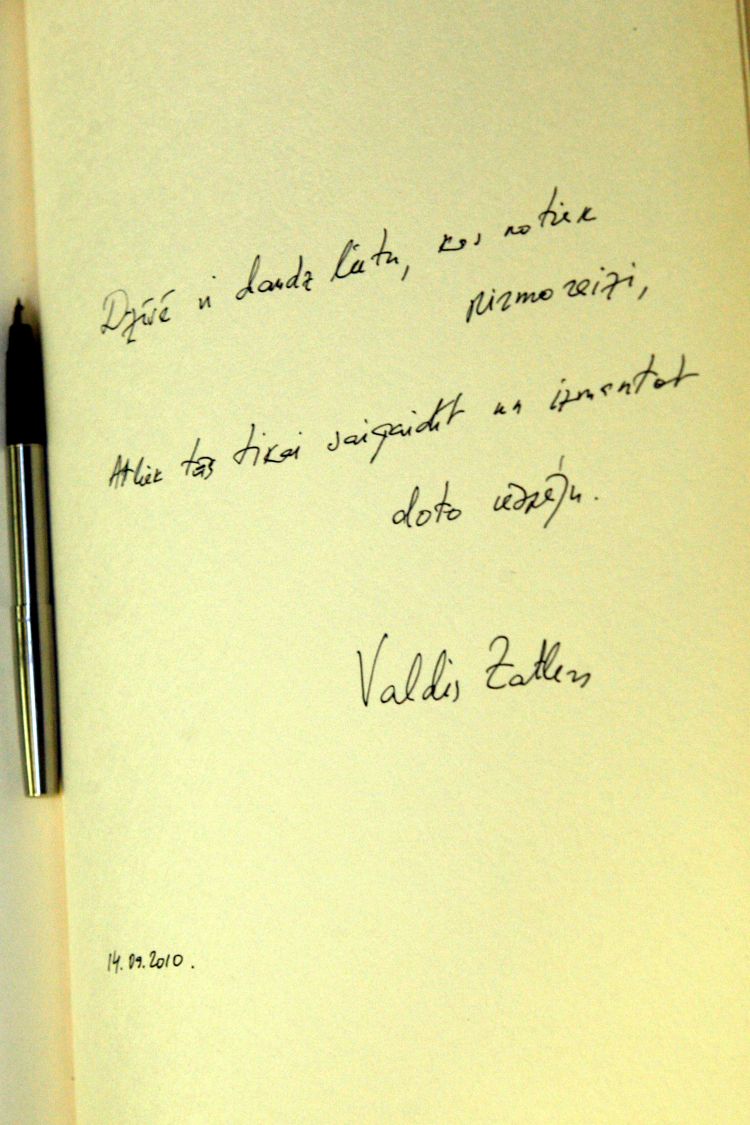 Dzīvē ir daudz lietu, kas notiek
pirmo reizi,
Atliek tās tikai sagaidīt un izmantot
doto iespēju.
Valdis Zatlers
14.09.2010.